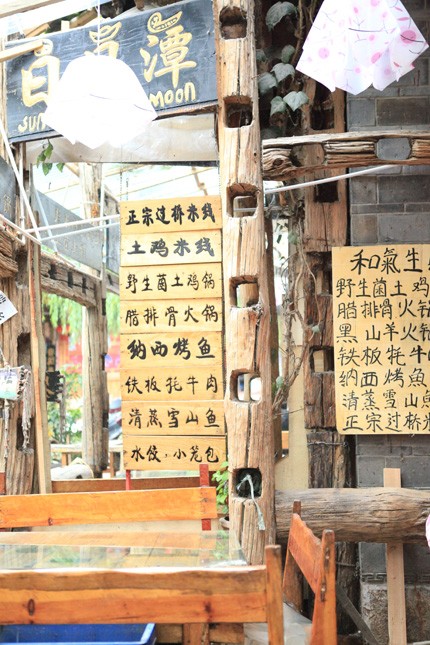 日月潭
sun moon
正宗过桥米线
土鸡米线
野生菌土鸡锅
腊排骨火锅
纳西烤鱼
铁板牦牛肉
清蒸雪山鱼
水饺，小笼包
和氣生
野生菌土鸡
腊排骨火锅
黑山羊火
铁板牦牛
纳西烤魚
清蒸雪山魚
正宗过桥米